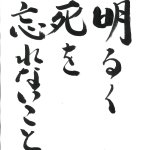 明るく
死を
忘れないこと